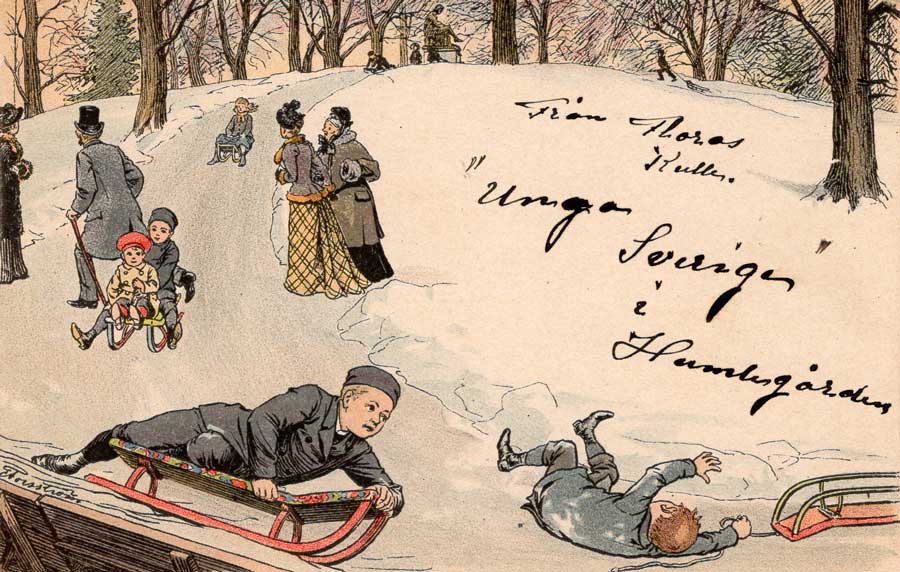 Från Floras
Kulle.
"Unga
Sverige"
i
Humlegården